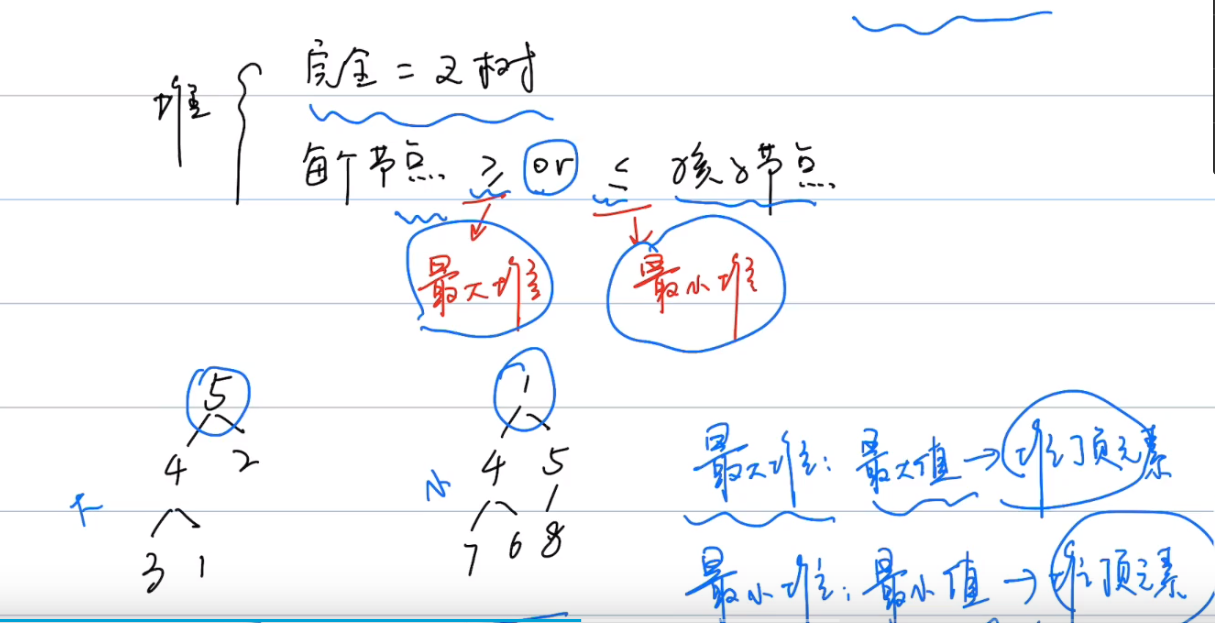 堆
完全二叉树
每个节点 ≥ or ≤ 孩子节点
最大堆 最小堆
5 1
4 2 4 5
大 小
3 1 7 6 8
最大堆: 最大值→堆顶元素
最小堆: 最小值→堆顶元素